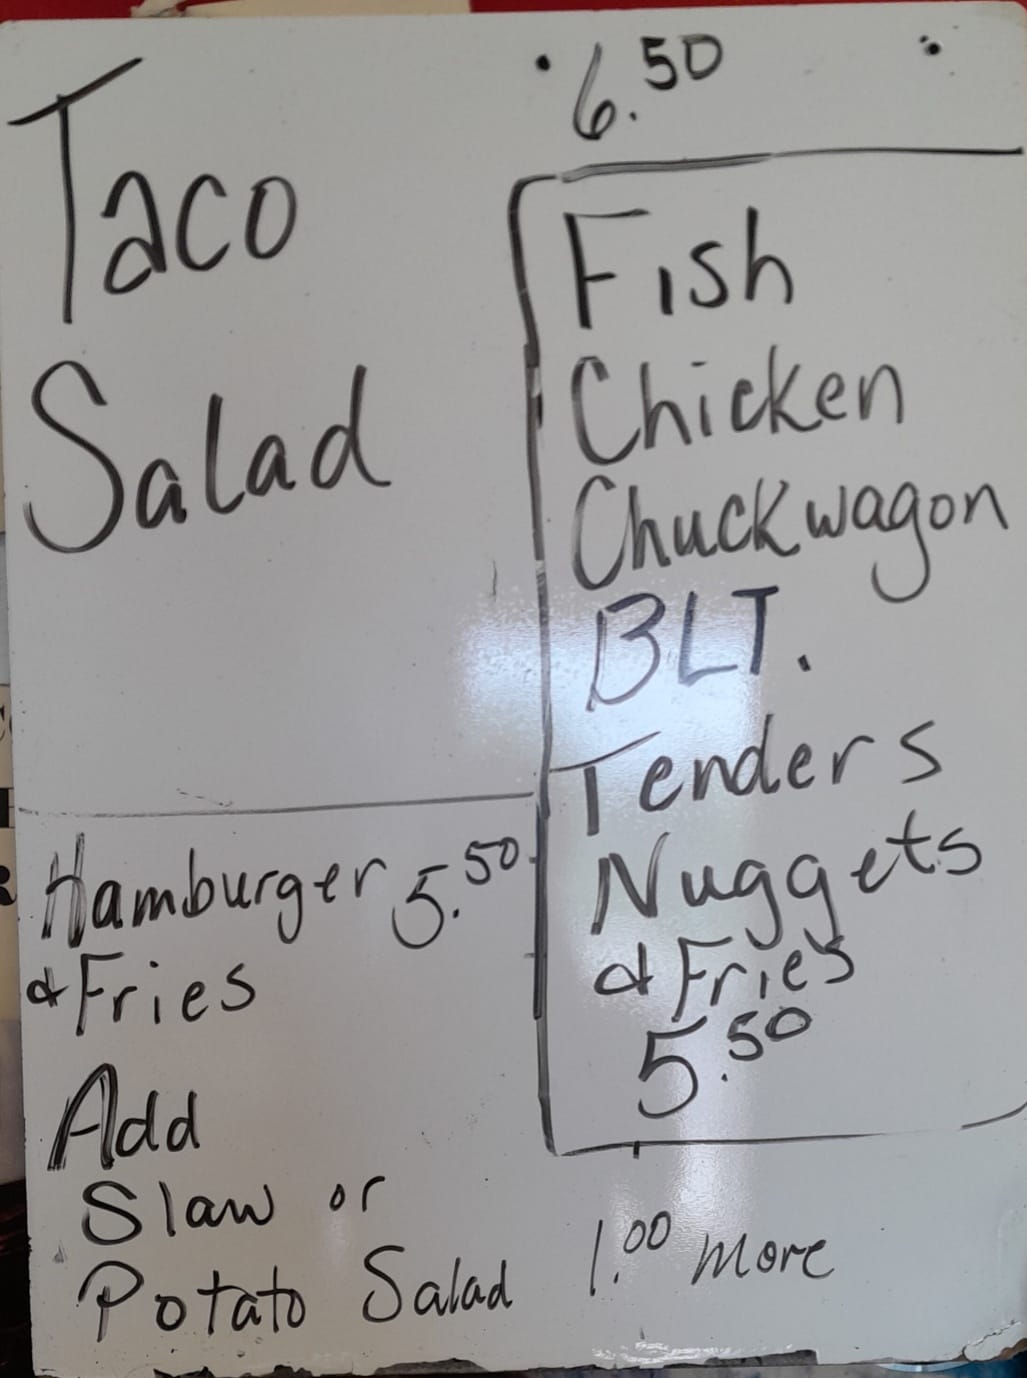 Taco
Salad
6.50
Fish
Chicken
Chuckwagon
BLT.
Tenders
Nuggets
& Fries
5.50
Hamburger 5.50
& Fries
Add
Slaw or
Potato Salad 1.00 more